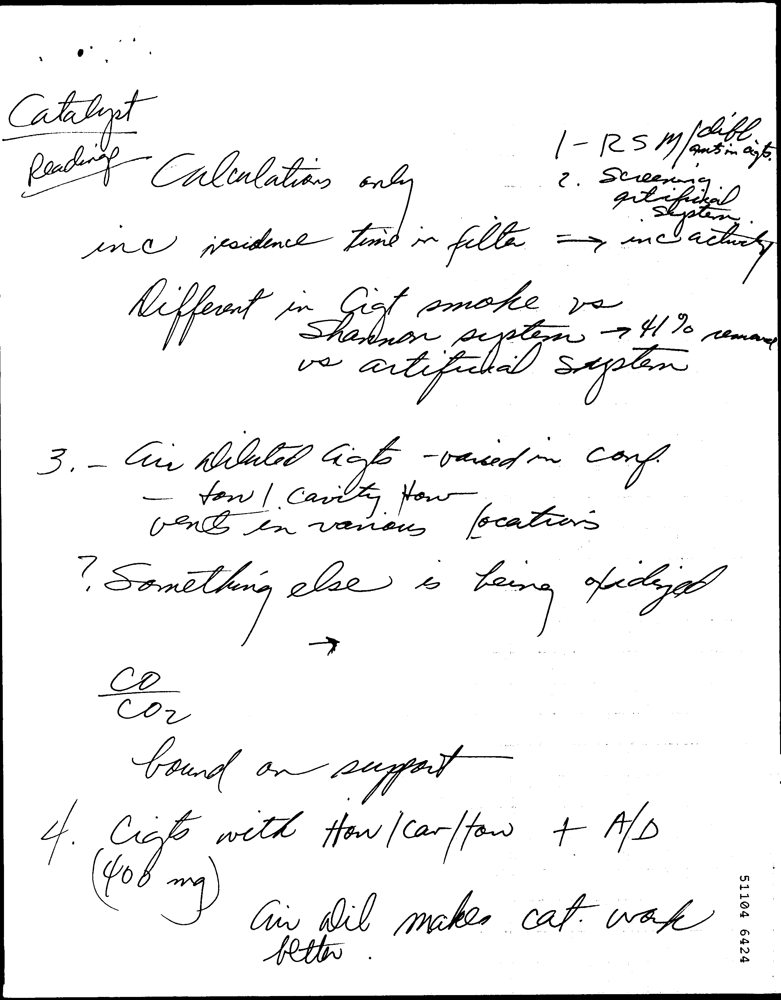 Catalyst
Reading
Calculations only
1 - RSM/diff amts in cigts.
2. Screening
artificial
system.
inc residence time in filter ⇒ inc activity
Different in Cigt smoke vs
Shannon system → 41% removal
vs artificial system
3. - Air Diluted Cigts - varied in conf.
- tow / cavity How
vents in various locations
? Something else is being oxidized
→
CO
CO2
bound on support
4. Cigts with How/Cav/tow + A/D
(400 mg)
Air dil makes cat. work
better.
51104 6424